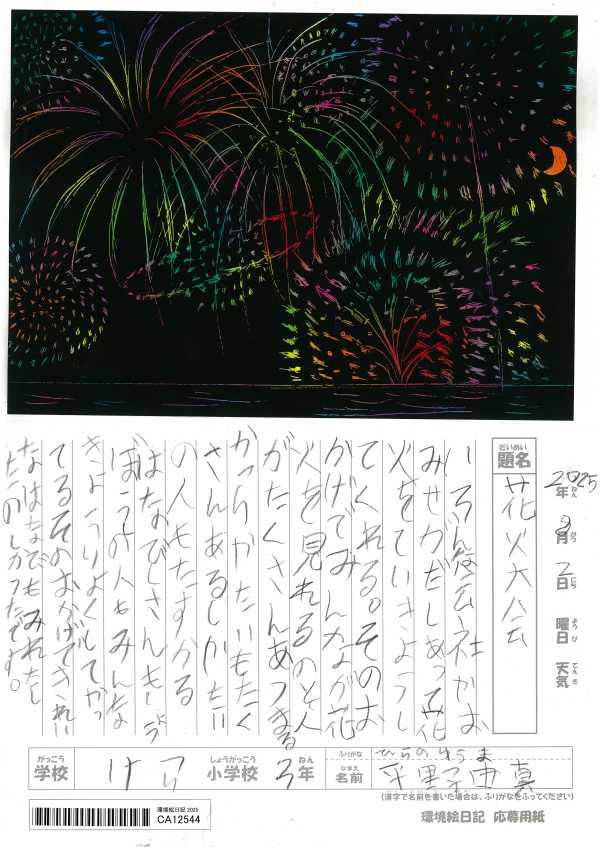 だいめい
題名
花火大会
2025
年 ねん
月 がつ
2
日 にち
曜日 ようび
天気 てんき
いろんな会社がお
みせがだしあって花
火をていきようし
てくれる。そのお
かげでみんなが花
火を見れるのと人
がたくさんあつまる
からかったいもたく
さんあるしかったい
の人もたすかる
はなびさんもしょう
ぼうの人もみんな
きょうりよくしてやっ
てるそのおかげできれい
なはなびもみれたし
たのしかったです。
がっこう
学校
しょうがっこう
小学校
3
ねん
年
ふりがな
ひらのゆうま
なまえ
名前
真
(漢字で名前を書いた場合は、ふりがなをふってください)
環境絵日記 2025
CA12544
環境絵日記 応募用紙